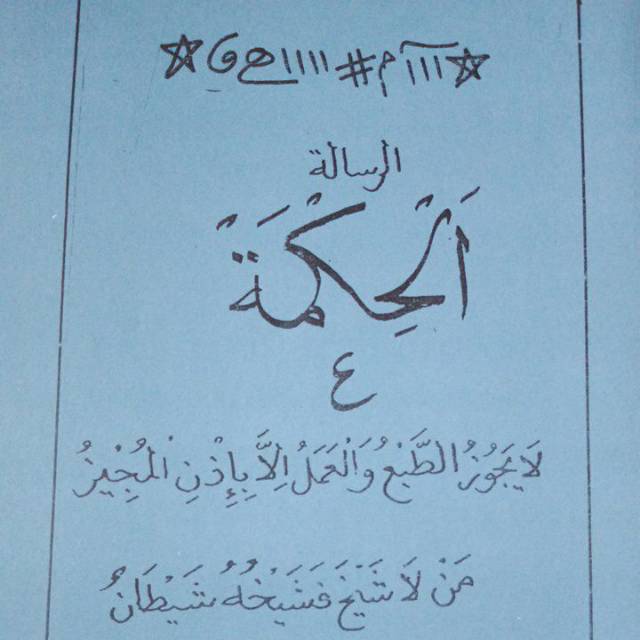 الرسالة
اَلْحِكْمَةُ
٤
لَا يَجُوْزُ الطَّبْعُ وَالْعَمَلُ اِلَّا بِإِذْنِ الْمُجِيْزُ
مَنْ لَا شَيْخَ فَشَيْخُهُ شَيْطَانُ